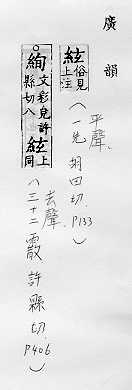 廣韻
絃俗見上注
平聲.
(一先 胡田切. P133)
絢文彩皃許縣切八絃上同
去聲.
(三十二霰 許縣切. P406)